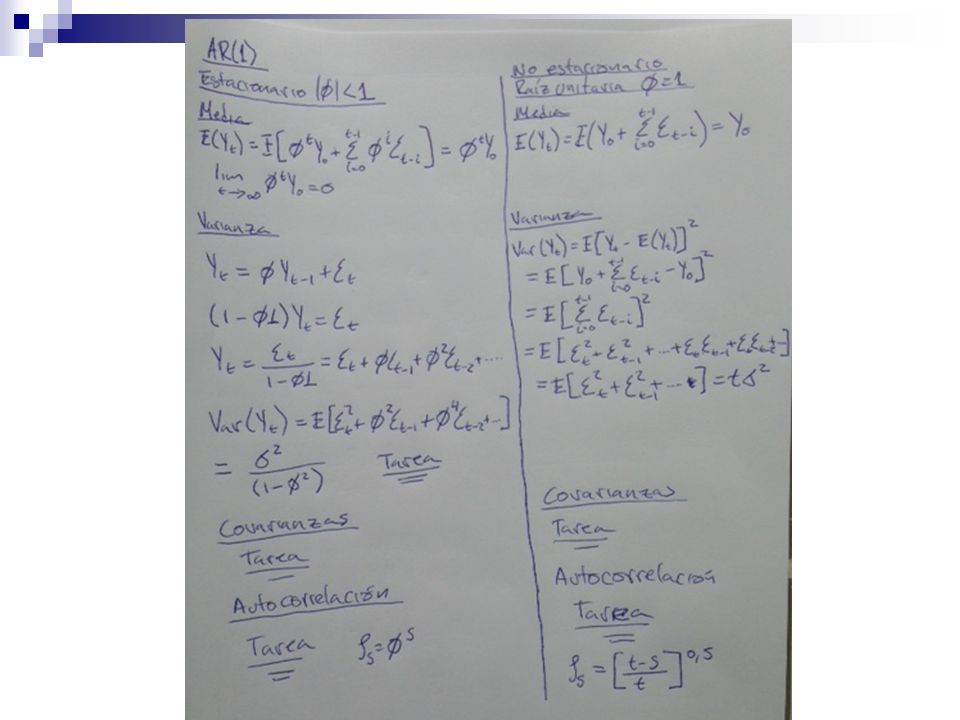 AR(1)
Estacionario |ϕ|<1
Media
E(Yt)=E[ϕ^t Y0+∑_{i=0}^{t-1} ϕ^i Ɛt-i]=ϕ^t Y0
lim_{t→∞} ϕ^t Y0=0
Varianza
Yt=ϕYt-1+Ɛt
(1-ϕL)Yt=Ɛt
Yt=Ɛt/(1-ϕL)=Ɛt+ϕƐt-1+ϕ²Ɛt-2+....
Var(Yt)=E[Ɛ²t+ϕ²Ɛt-1+ϕ⁴Ɛt-2+..]
=σ²/(1-ϕ²) Tarea
Covarianzas
Tarea
Autocorrelación
Tarea ρs=ϕ^s
No estacionario
Raíz Unitaria ϕ=1
Media
E(Yt)=E(Y0+∑_{i=0}^{t-1} Ɛt-i)=Y0
Varianza
Var(Yt)=E[Y0-E(Yt)]²
=E[Y0+∑_{i=0}^{t-1} Ɛt-i-Y0]²
=E[∑_{i=0}^{t-1} Ɛt-i]²
=E[Ɛ²t+Ɛ²t-1+...+ƐtƐt-1+ƐtƐt-2+..]
=E[Ɛ²t+Ɛ²t-1+...]=tσ²
Covarianzas
Tarea
Autocorrelación
Tarea
ρs=[(t-s)/t]^0,5